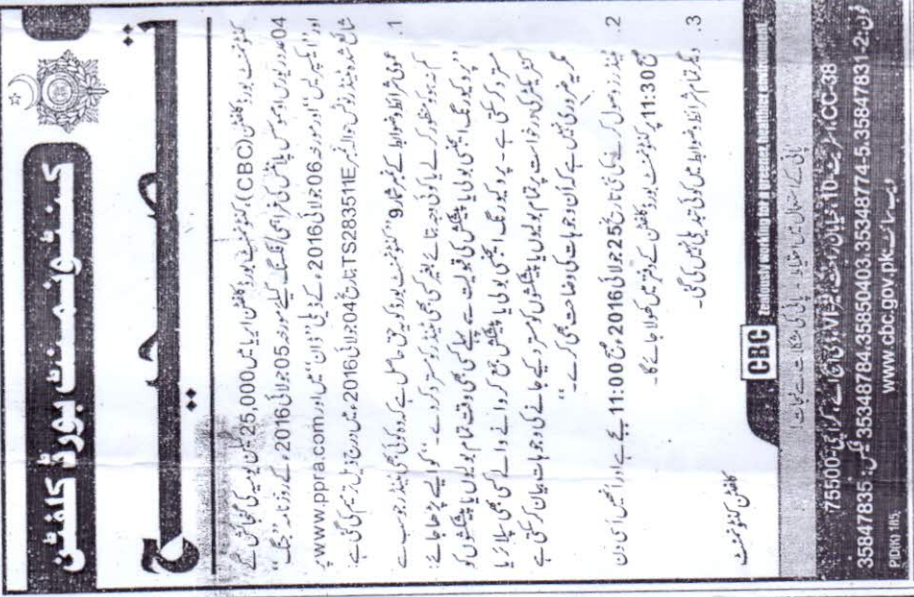 کنٹونمنٹ بورڈ کلفٹن
تصحیح
کنٹونمنٹ بورڈ کلفٹن (CBC)، کنٹونمنٹ بورڈ کلفٹن ایریا میں 25,000 گیلن یومیہ کی گنجائش کے
04 عدد ریورس اوسموس پلانٹس کی فراہمی / فکسنگ کیلئے مورخہ 05 جولائی 2016ء کے روزنامہ "جنگ"
اور "ایکسپریس" اور مورخہ 06 جولائی 2016ء کے ڈیلی "ڈان" میں اور www.ppra.com پر
شائع شدہ ٹینڈر نوٹس بحوالہ نمبر TS283511E بتاریخ 04 جولائی 2016ء میں درج ذیل ترمیم کی گئی ہے:
1. عمومی شرائط و ضوابط کے نمبر شمار 9 "کنٹونمنٹ بورڈ کو یہ حق حاصل ہے کہ وہ کوئی بھی ٹینڈر جو سب سے
کم ہو کو منظور کرے یا کوئی وجہ بتائے بغیر کسی بھی ٹینڈر کو مسترد کر دے۔" کو ایسے پڑھا جائے:
"پروکیورنگ ایجنسی بولی یا پیشکش کی قبولیت سے پہلے کسی بھی وقت تمام بولیوں یا پیشکشوں کو
مسترد کر سکتی ہے۔ پروکیورنگ ایجنسی بولی یا پیشکش جمع کروانے والے کسی بھی سپلائر یا
کنٹریکٹر کی درخواست پر تمام بولیوں یا پیشکشوں کو مسترد کیے جانے کی وجوہات بیان کر سکتی ہے
مگر یہ ضروری نہیں ہے کہ ان وجوہات کی وضاحت بھی کرے۔"
2. ٹینڈرز وصول کرنے کی نئی تاریخ 25 جولائی 2016ء صبح 11:00 بجے ہے اور انہیں اسی دن
صبح 11:30 پر کنٹونمنٹ بورڈ کلفٹن کے دفتر میں کھولا جائے گا۔
3. دیگر تمام شرائط و ضوابط میں کوئی تبدیلی نہیں کی گئی۔
کلفٹن کنٹونمنٹ
CBC Zealously working for a greener, healthier environment
پانی کے استعمال میں احتیاط۔ پانی کی مشکلات سے نجات!
CC-38، اسٹریٹ 10، خیابان راحت، فیز VI، ڈی ایچ اے، کراچی-75500
فون: 2-35847831, 5-35348774, 35850403, 35348784 فیکس: 35847835
ویب سائٹ: www.cbc.gov.pk
P(D(K) 185;